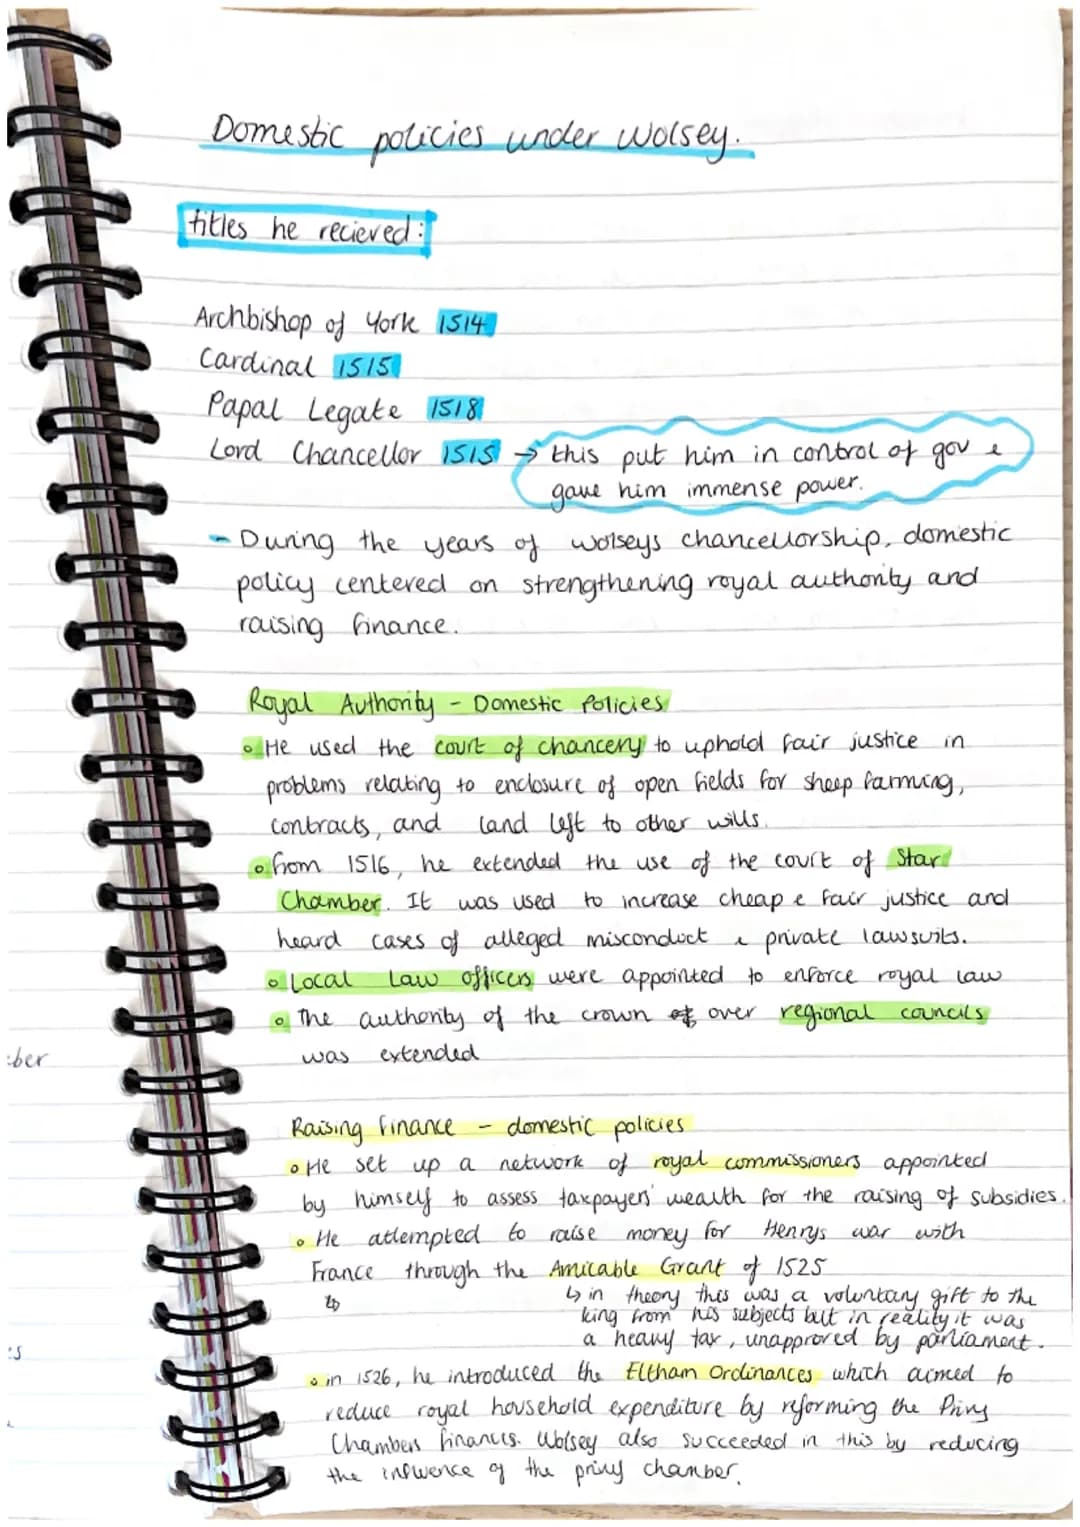 Domestic policies under Wolsey.
titles he recieved:
Archbishop of York 1514
Cardinal 1515
Papal Legate 1518
Lord Chancellor 1515 → this put him in control of gov &
gave him immense power.
- During the years of wolseys chancellorship, domestic
policy centered on strengthening royal authority and
raising finance.
Royal Authority - Domestic Policies
He used the court of chancery to uphold fair justice in
problems relating to enclosure of open fields for sheep farming,
contracts, and land left to other wills.
from 1516, he extended the use of the court of Star
Chamber. It was used to increase cheap & fair justice and
heard cases of alleged misconduct & private lawsuits.
Local Law officers were appointed to enforce royal law
The authority of the crown of over regional councils
was extended
Raising finance - domestic policies
He set up a network of royal commissioners appointed
by himself to assess taxpayers' wealth for the raising of subsidies.
He attempted to raise money for Henrys war with
France through the Amicable Grant of 1525
↳ in theory this was a voluntary gift to the
king from his subjects but in reality it was
a heavy tax, unapproved by parliament.
in 1526, he introduced the Eltham Ordinances which aimed to
reduce royal household expenditure by reforming the Privy
Chambers finances. Wolsey also succeeded in this by reducing
the influence of the privy chamber.